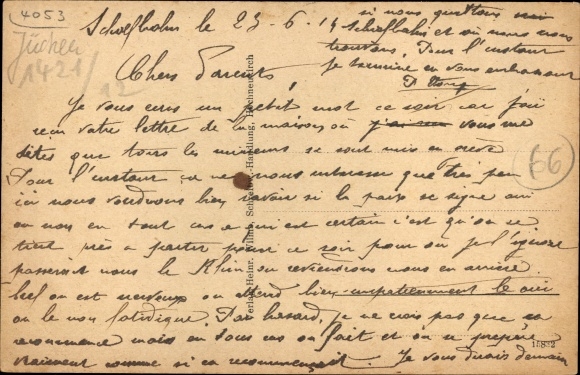 4053
Jüchen
1421/12
66
Schelfbahn le 23-6-19
si nous quittons
et où nous nous
trouvons. Pour l'instant
Je termine en vous embrassant
Chers Parents,
Je vous écris un petit mot ce soir car j'ai
reçu votre lettre de la maison où j'ai vous me
dites que tous les mineurs se sont mis en grève
Pour l'instant ça ne nous intéresse que très peu
ici nous voudrions bien savoir si la paix se signe oui
ou non en tout cas ce qui est certain c'est qu'on se
tient prêt à partir pour ce soir pour où je l'ignore
passerait nous le Rhin ou reviendrions nous en arrière
bref on est nerveux on attend bien impatiemment le oui
ou le non fatidique. Par hasard, je ne crois pas que ça
recommence mais en tous cas on fait et on se prépare
vraiment comme si ça recommençait. Je vous dirais demain
Verlag Heinr. Handlung, Hochneukirch
15832